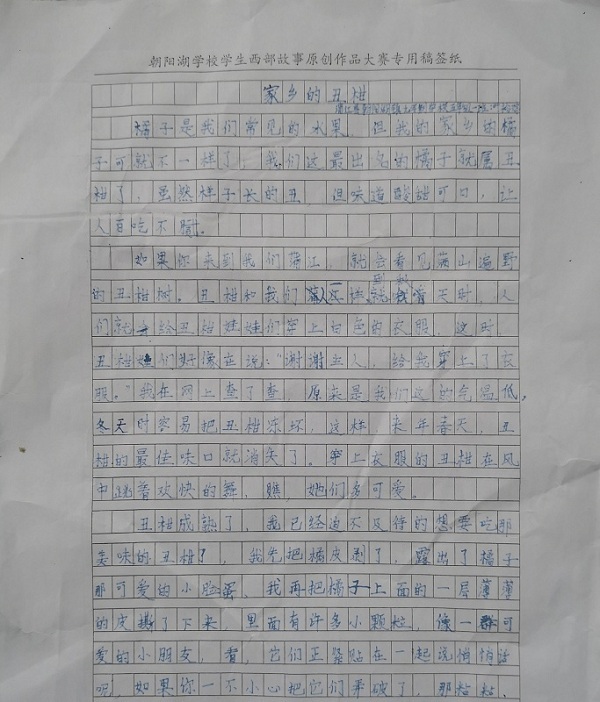 朝阳湖学校学生西部故事原创作品大赛专用稿签纸
家乡的丑柑
橘子是我们常见的水果，但我的家乡的橘
子可就不一样了，我们这最出名的橘子就属丑
柑了，虽然样子长的丑，但味道酸甜可口，让
人百吃不腻。
如果你来到我们蒲江，就会看见满山遍野
的丑柑树。丑柑和我们一样天时，人
们就会给丑柑娃娃们穿上白色的衣服，这时，
丑柑娃们好像在说：“谢谢主人，给我穿上了衣
服。”我在网上查了查，原来是我们这的气温低，
冬天时容易把丑柑冻坏，这样来年春天，丑
柑的最佳味口就消失了。穿上衣服的丑柑在风
中跳着欢快的舞，瞧，她们多可爱。
丑柑成熟了，我已经迫不及待的想要吃那
美味的丑柑了，我先把橘皮剥了，露出了橘子
那可爱的小脸蛋，我再把橘子上面的一层薄薄
的皮撕了下来，里面有许多小颗粒，像一群可
爱的小朋友，看，它们正紧贴在一起说悄悄话
呢，如果你一不小心把它们弄破了，那粘粘，